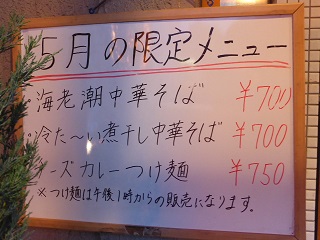 5月の限定メニュー
海老潮中華そば ¥700
冷た〜い煮干し中華そば ¥700
ーズカレーつけ麺 ¥750
※つけ麺は午後1時からの販売になります。